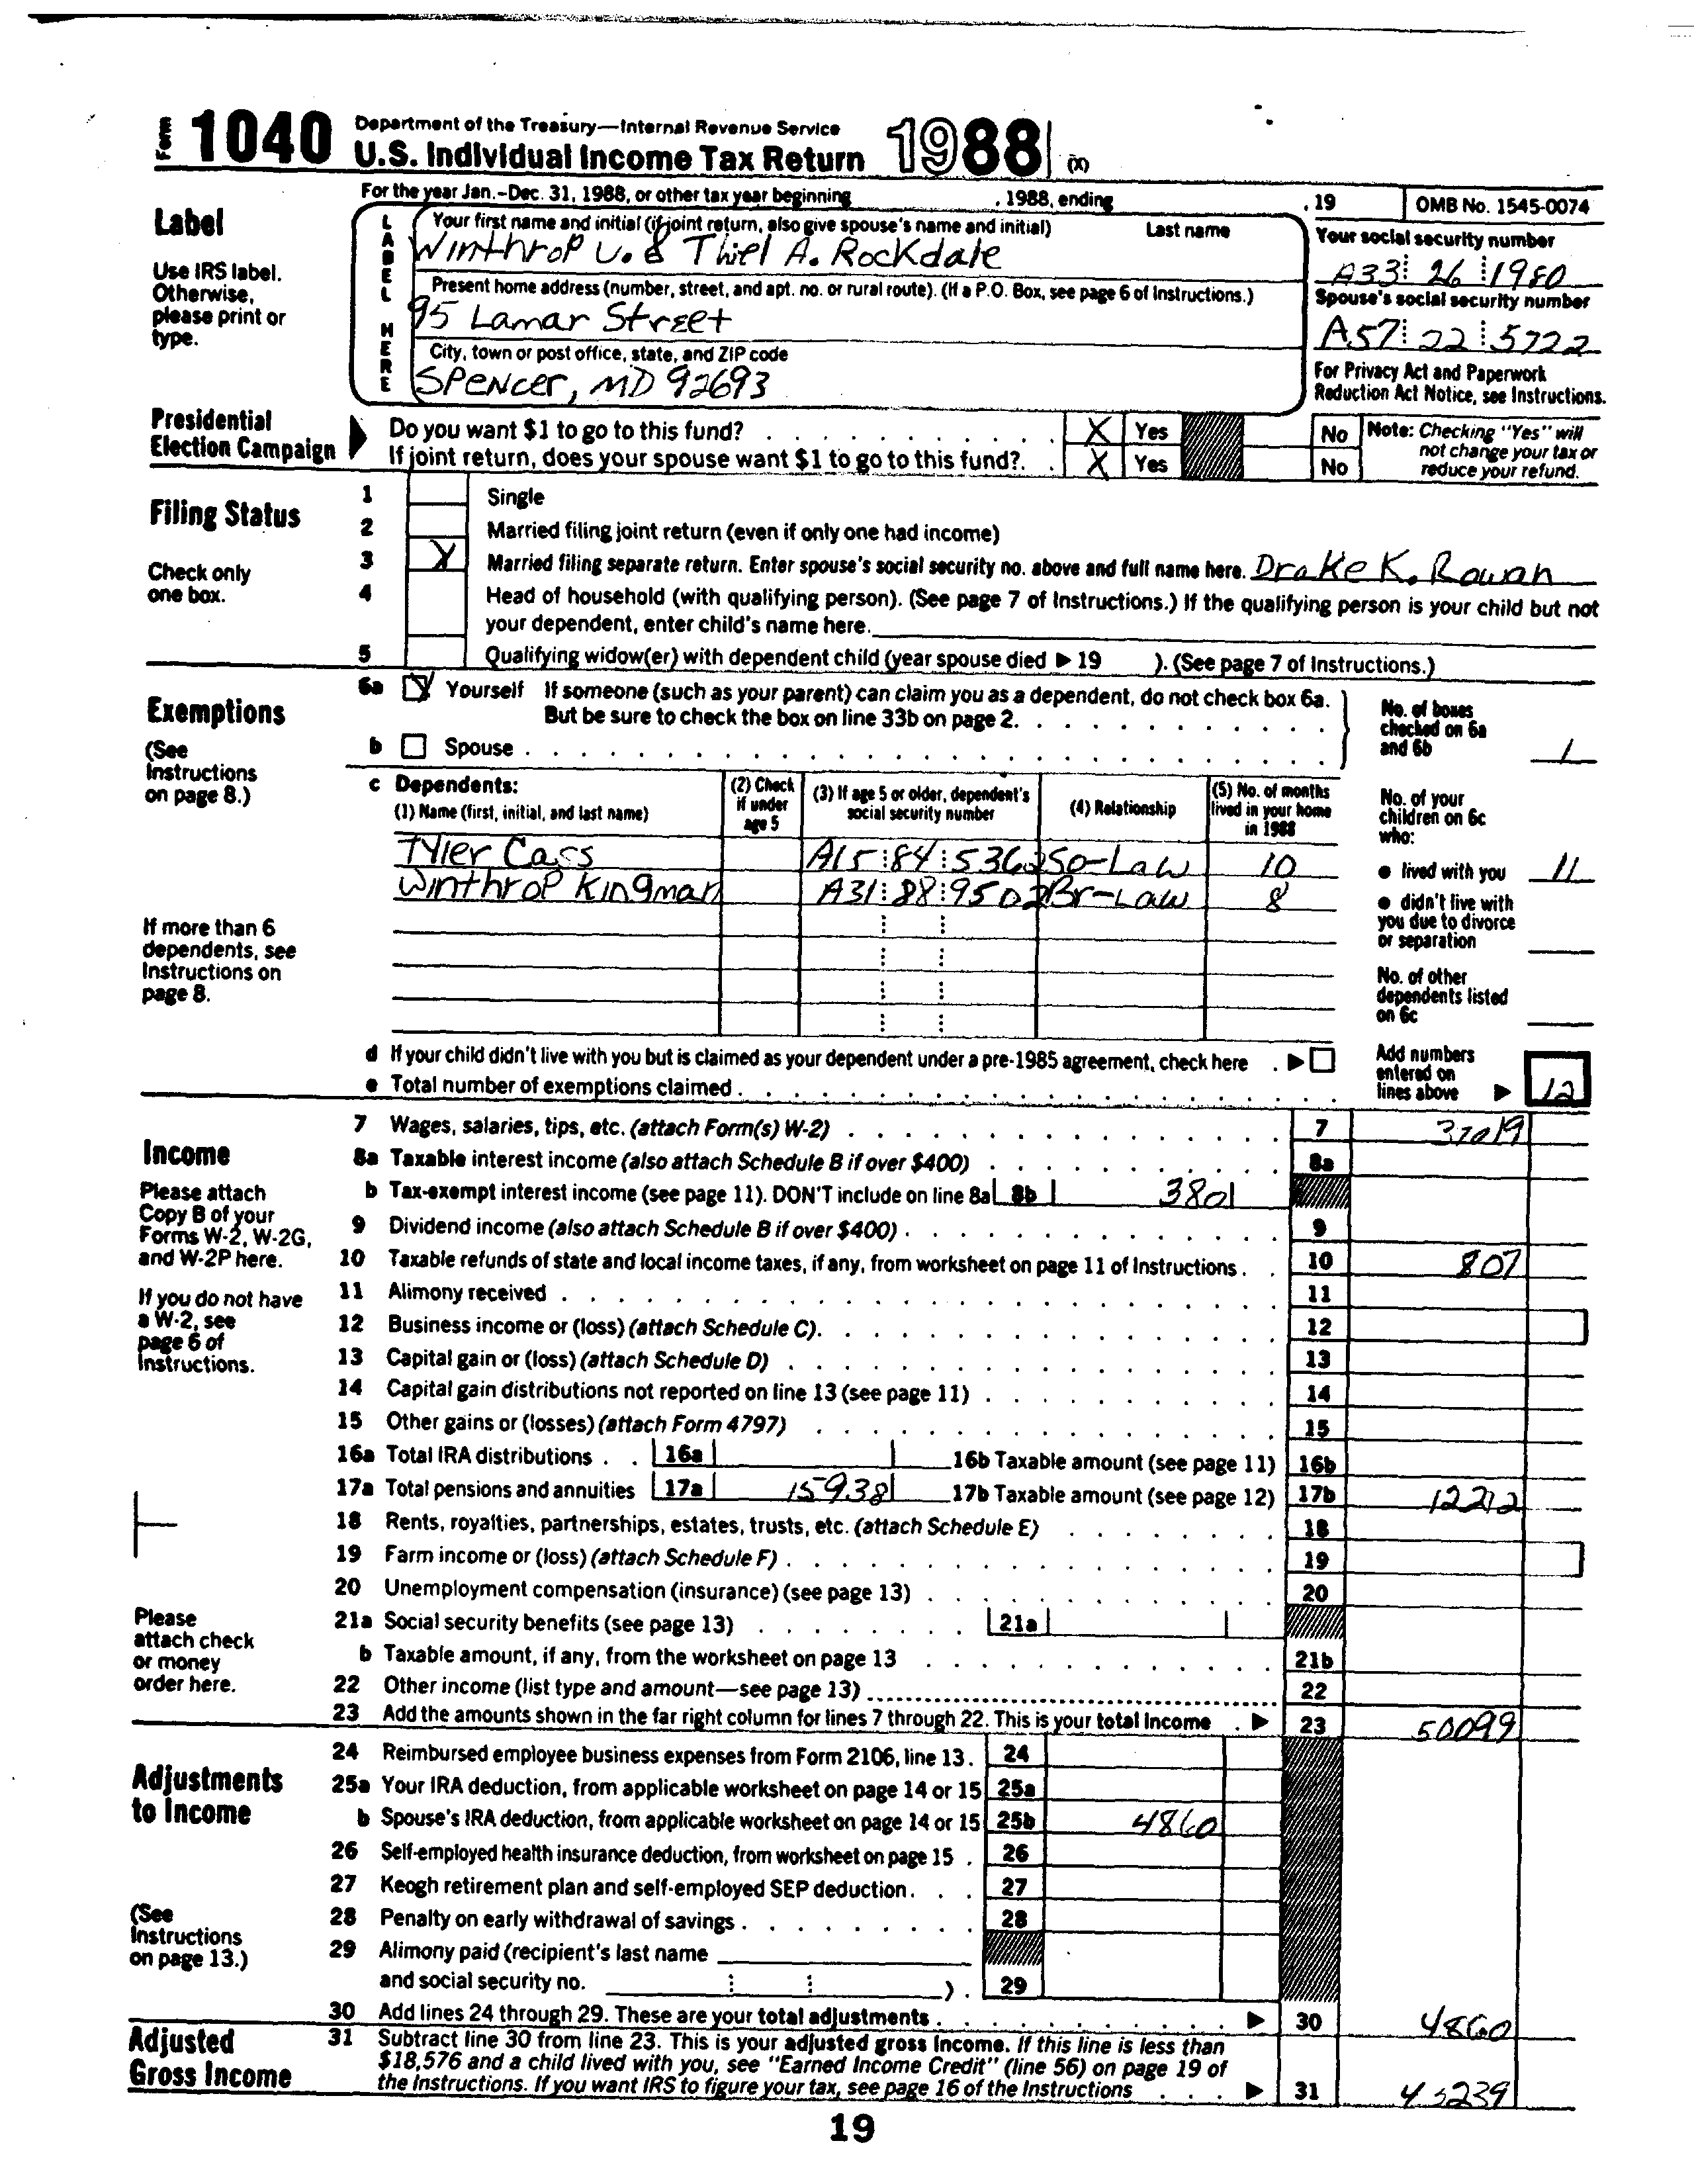 Form 1040 Department of the Treasury—Internal Revenue Service
U.S. Individual Income Tax Return 1988 (X)
For the year Jan.-Dec. 31, 1988, or other tax year beginning , 1988, ending , 19 OMB No. 1545-0074
Label
Use IRS label.
Otherwise,
please print or
type.
LABEL HERE
Your first name and initial (if joint return, also give spouse's name and initial) Last name
Winthrop U. & Thiel A. Rockdale
Present home address (number, street, and apt. no. or rural route). (If a P.O. Box, see page 6 of Instructions.)
95 Lamar Street
City, town or post office, state, and ZIP code
Spencer, MD 92693
Your social security number
A33 26 1980
Spouse's social security number
A57 22 5722
For Privacy Act and Paperwork
Reduction Act Notice, see Instructions.
Presidential
Election Campaign
Do you want $1 to go to this fund? X Yes No
If joint return, does your spouse want $1 to go to this fund?. X Yes No
Note: Checking "Yes" will
not change your tax or
reduce your refund.
Filing Status
Check only
one box.
1 Single
2 Married filing joint return (even if only one had income)
3 X Married filing separate return. Enter spouse's social security no. above and full name here. Drake K. Rowan
4 Head of household (with qualifying person). (See page 7 of Instructions.) If the qualifying person is your child but not
your dependent, enter child's name here.
5 Qualifying widow(er) with dependent child (year spouse died ▶ 19 ). (See page 7 of Instructions.)
Exemptions
(See
Instructions
on page 8.)
6a X Yourself If someone (such as your parent) can claim you as a dependent, do not check box 6a.
But be sure to check the box on line 33b on page 2.
b Spouse
No. of boxes
checked on 6a
and 6b 1
c Dependents:
(1) Name (first, initial, and last name)
(2) Check
if under
age 5
(3) If age 5 or older, dependent's
social security number
(4) Relationship
(5) No. of months
lived in your home
in 1988
Tyler Cass A15 84 5362 So-Law 10
Winthrop Kingman A31 88 9502 Br-Law 8
No. of your
children on 6c
who:
● lived with you 11
● didn't live with
you due to divorce
or separation
No. of other
dependents listed
on 6c
If more than 6
dependents, see
Instructions on
page 8.
d If your child didn't live with you but is claimed as your dependent under a pre-1985 agreement, check here . ▶
e Total number of exemptions claimed
Add numbers
entered on
lines above ▶ 12
Income
Please attach
Copy B of your
Forms W-2, W-2G,
and W-2P here.
If you do not have
a W-2, see
page 6 of
Instructions.
Please
attach check
or money
order here.
7 Wages, salaries, tips, etc. (attach Form(s) W-2) 7 37019
8a Taxable interest income (also attach Schedule B if over $400) 8a
b Tax-exempt interest income (see page 11). DON'T include on line 8a 8b 380
9 Dividend income (also attach Schedule B if over $400) 9
10 Taxable refunds of state and local income taxes, if any, from worksheet on page 11 of Instructions 10 807
11 Alimony received 11
12 Business income or (loss) (attach Schedule C). 12
13 Capital gain or (loss) (attach Schedule D) 13
14 Capital gain distributions not reported on line 13 (see page 11) 14
15 Other gains or (losses) (attach Form 4797) 15
16a Total IRA distributions 16a 16b Taxable amount (see page 11) 16b
17a Total pensions and annuities 17a 15938 17b Taxable amount (see page 12) 17b 12212
18 Rents, royalties, partnerships, estates, trusts, etc. (attach Schedule E) 18
19 Farm income or (loss) (attach Schedule F) 19
20 Unemployment compensation (insurance) (see page 13) 20
21a Social security benefits (see page 13) 21a
b Taxable amount, if any, from the worksheet on page 13 21b
22 Other income (list type and amount—see page 13) 22
23 Add the amounts shown in the far right column for lines 7 through 22. This is your total income ▶ 23 50099
Adjustments
to Income
(See
Instructions
on page 13.)
24 Reimbursed employee business expenses from Form 2106, line 13. 24
25a Your IRA deduction, from applicable worksheet on page 14 or 15 25a
b Spouse's IRA deduction, from applicable worksheet on page 14 or 15 25b 4860
26 Self-employed health insurance deduction, from worksheet on page 15 26
27 Keogh retirement plan and self-employed SEP deduction 27
28 Penalty on early withdrawal of savings 28
29 Alimony paid (recipient's last name
and social security no. ). 29
30 Add lines 24 through 29. These are your total adjustments ▶ 30 4860
Adjusted
Gross Income
31 Subtract line 30 from line 23. This is your adjusted gross income. If this line is less than
$18,576 and a child lived with you, see "Earned Income Credit" (line 56) on page 19 of
the Instructions. If you want IRS to figure your tax, see page 16 of the Instructions ▶ 31 45239
19